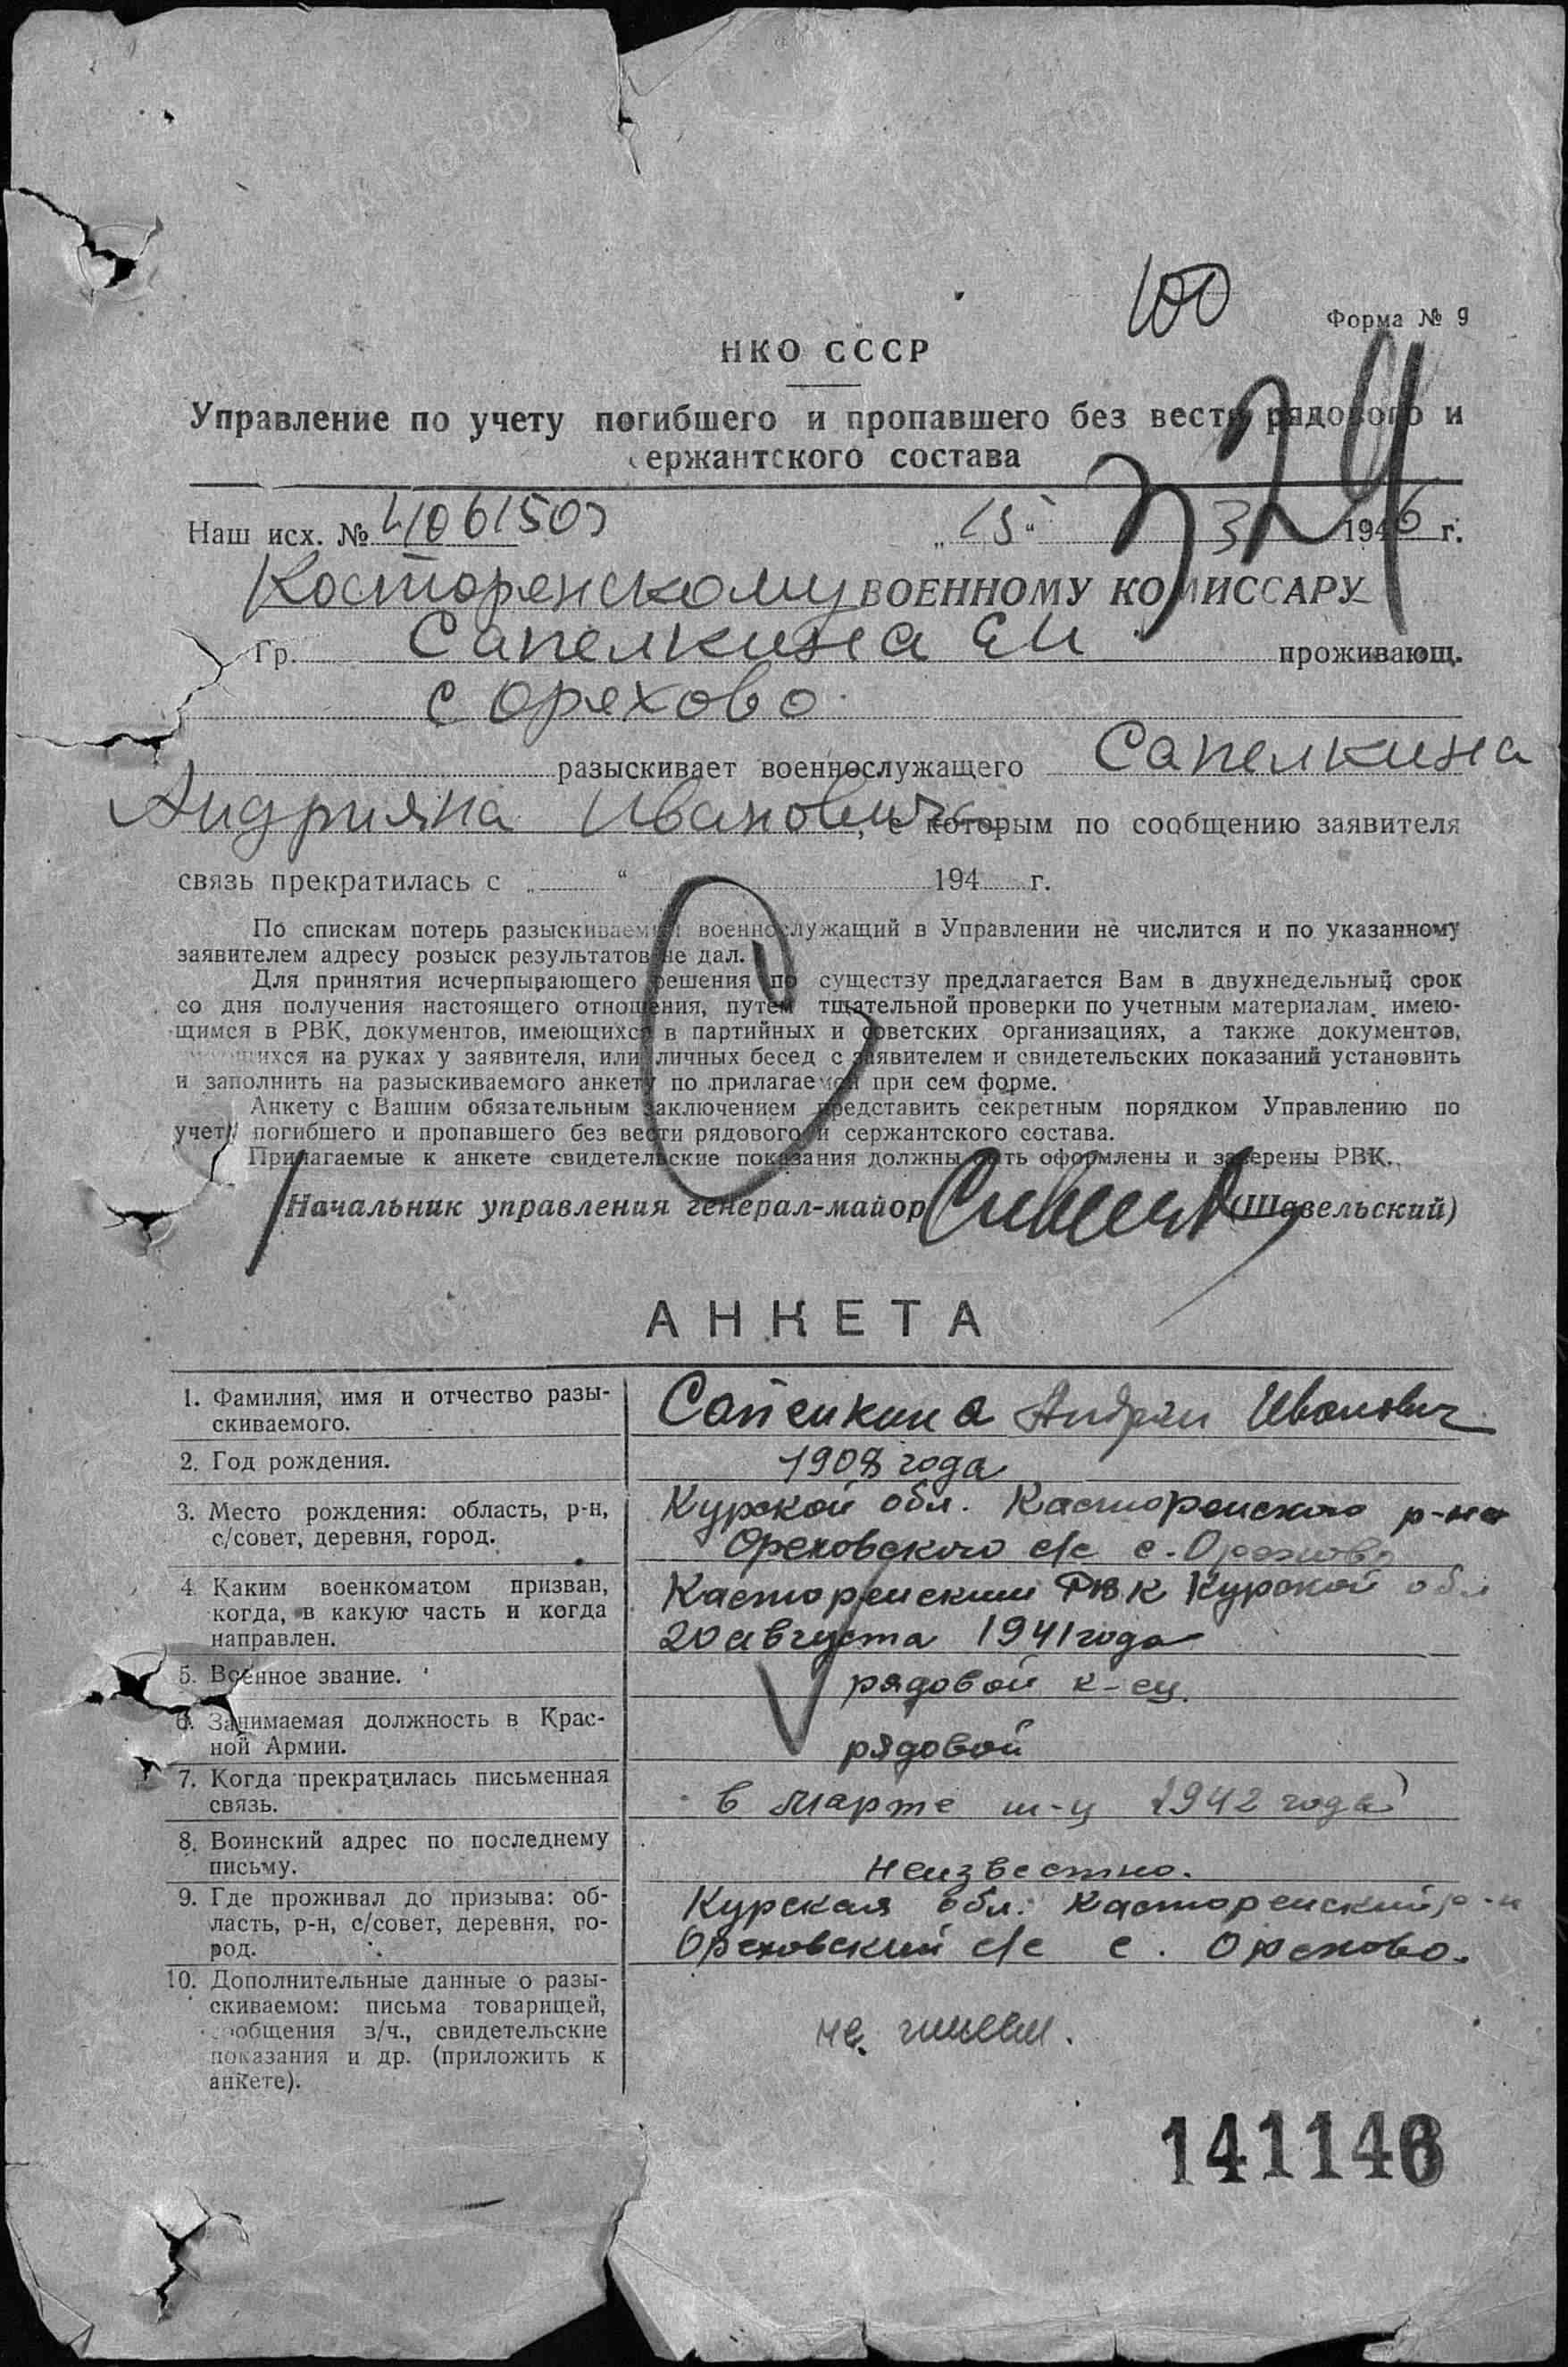 100
Форма № 9
НКО СССР
Управление по учету погибшего и пропавшего без вести рядового и
сержантского состава
324
Наш исх. № 4061507 „15“ 3 1946 г.
Косторенскому ВОЕННОМУ КОМИССАРУ
Гр. Сапелкина Е И проживающ.
с Орехово.
разыскивает военнослужащего Сапелкина
Андрияна Ивановича, с которым по сообщению заявителя
связь прекратилась с „ “ 194 г.
По спискам потерь разыскиваемый военнослужащий в Управлении не числится и по указанному
заявителем адресу розыск результатов не дал.
Для принятия исчерпывающего решения по существу предлагается Вам в двухнедельный срок
со дня получения настоящего отношения, путем тщательной проверки по учетным материалам, имею-
щимся в РВК, документов, имеющихся в партийных и советских организациях, а также документов,
имеющихся на руках у заявителя, или личных бесед с заявителем и свидетельских показаний установить
и заполнить на разыскиваемого анкету по прилагаемой при сем форме.
Анкету с Вашим обязательным заключением представить секретным порядком Управлению по
учету погибшего и пропавшего без вести рядового и сержантского состава.
Прилагаемые к анкете свидетельские показания должны быть оформлены и заверены РВК.
Начальник управления генерал-майор (Шавельский)
АНКЕТА
1. Фамилия, имя и отчество разы-
скиваемого.
Сапелкина Андрян Иванович
2. Год рождения.
1908 года
3. Место рождения: область, р-н,
с/совет, деревня, город.
Курской обл. Касторенского р-на
Ореховского с/с с. Орехово
4. Каким военкоматом призван,
когда, в какую часть и когда
направлен.
Касторенским РВК Курской обл
20 августа 1941 года
5. Военное звание.
рядовой к-ец.
6. Занимаемая должность в Крас-
ной Армии.
рядовой
7. Когда прекратилась письменная
связь.
в марте м-ц 1942 года
8. Воинский адрес по последнему
письму.
неизвестно.
9. Где проживал до призыва: об-
ласть, р-н, с/совет, деревня, го-
род.
Курская обл. Касторенский р-н
Ореховский с/с с. Орехово.
10. Дополнительные данные о разы-
скиваемом: письма товарищей,
сообщения в/ч., свидетельские
показания и др. (приложить к
анкете).
не
141146